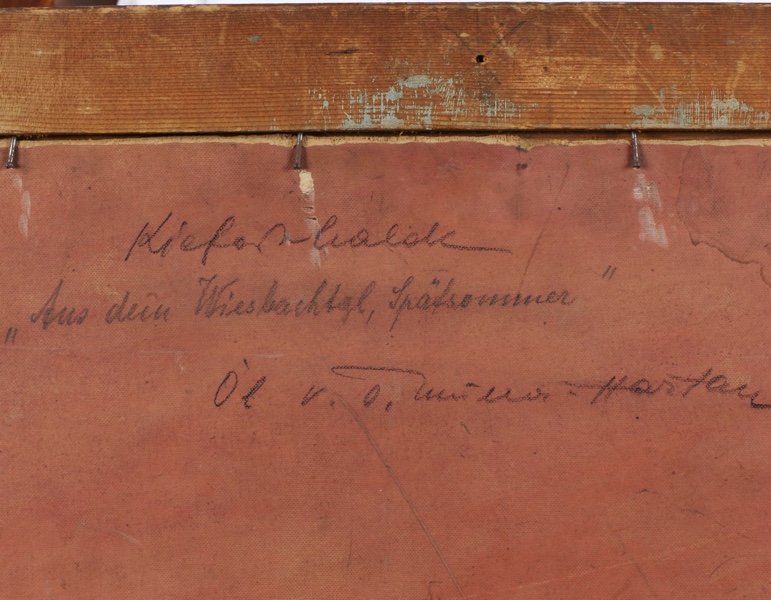 Kiefernhalde
„Aus dem Wiesbachtal, Spätsommer"
Öl v. O. Müller-Hartau